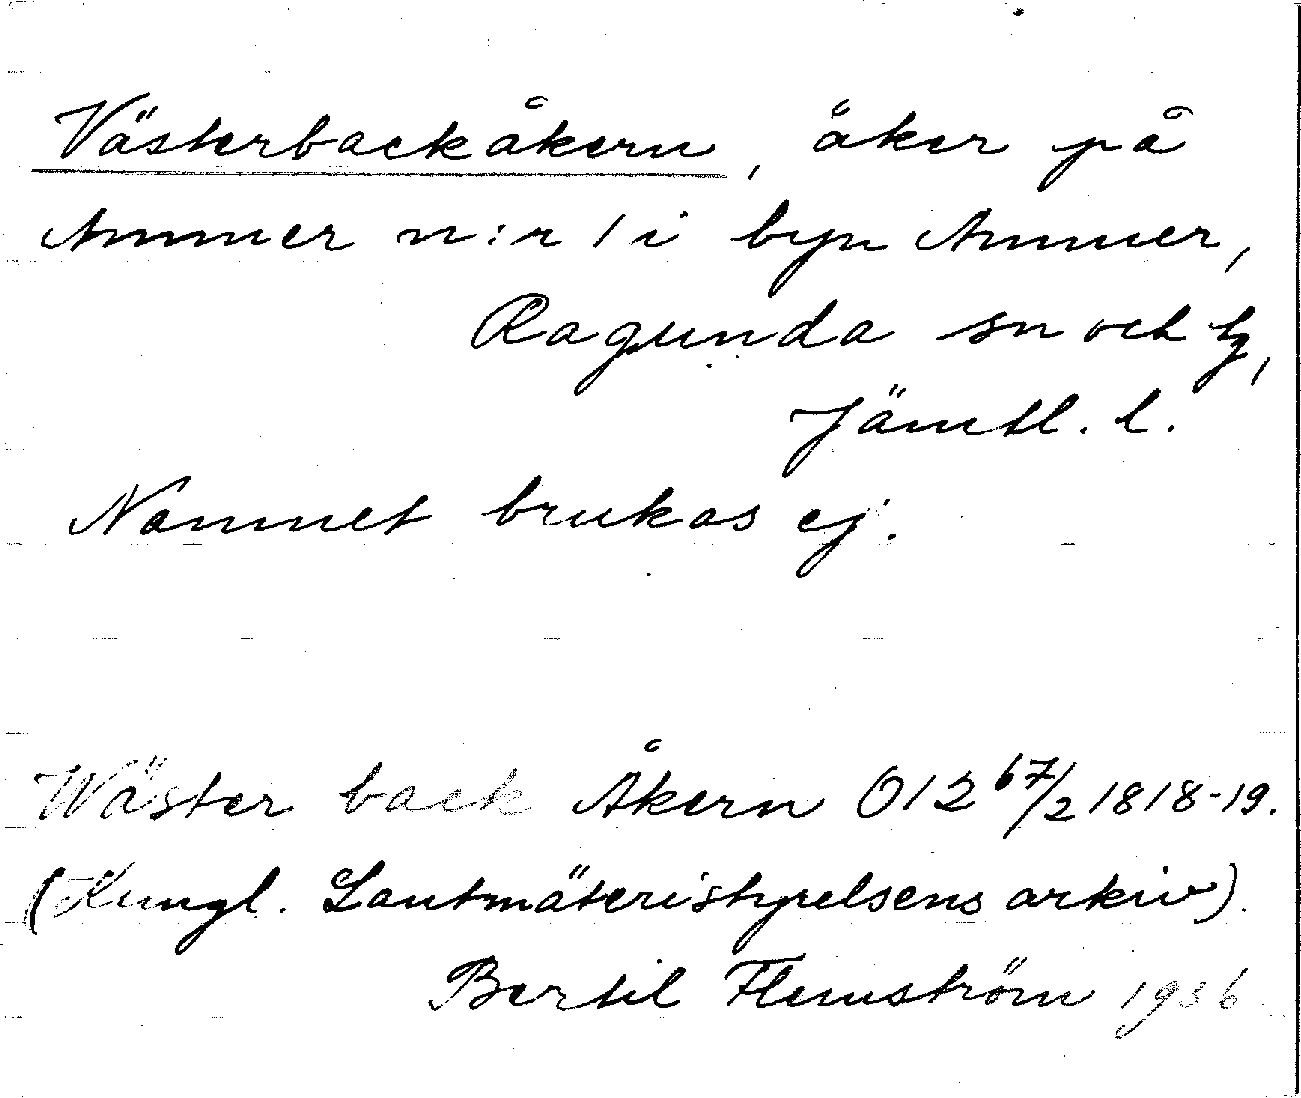 Västerbackåkern, åker på
Ammer n:r 1 i byn Ammer,
Ragunda sn och tg,
Jämtl. l.
Namnet brukas ej.
Wäster back Åkern O12 67/2 1818-19.
(Kungl. Lantmäteristyrelsens arkiv).
Bertil Flemström 1936